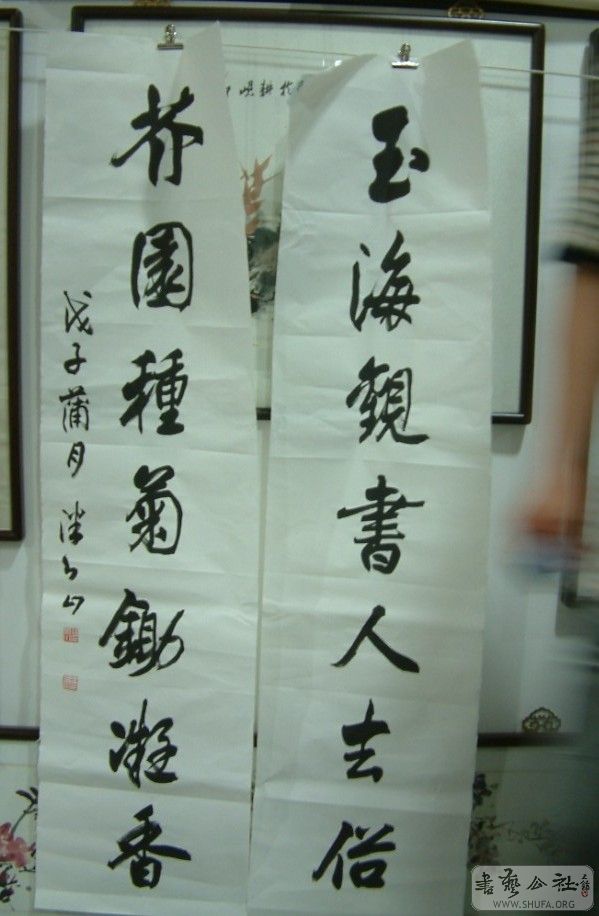 玉海觀書人去俗
芥園種菊鋤凝香
戊子蒲月
书艺公社
WWW.SHUFA.ORG